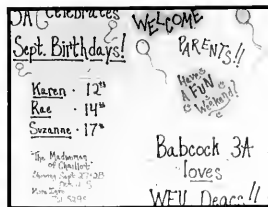 3A Celebrates
Sept. Birthdays!
Karen · 12th
Rae · 14th
Suzanne · 17th
"The Madwoman
of Chaillot"
Showing Sept 27-28
WELCOME
PARENTS!!
Have
A FUN
Weekend!
Babcock 3A
loves
WFU Deacs!!